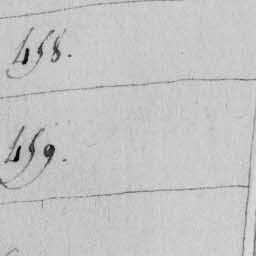 458.
459.